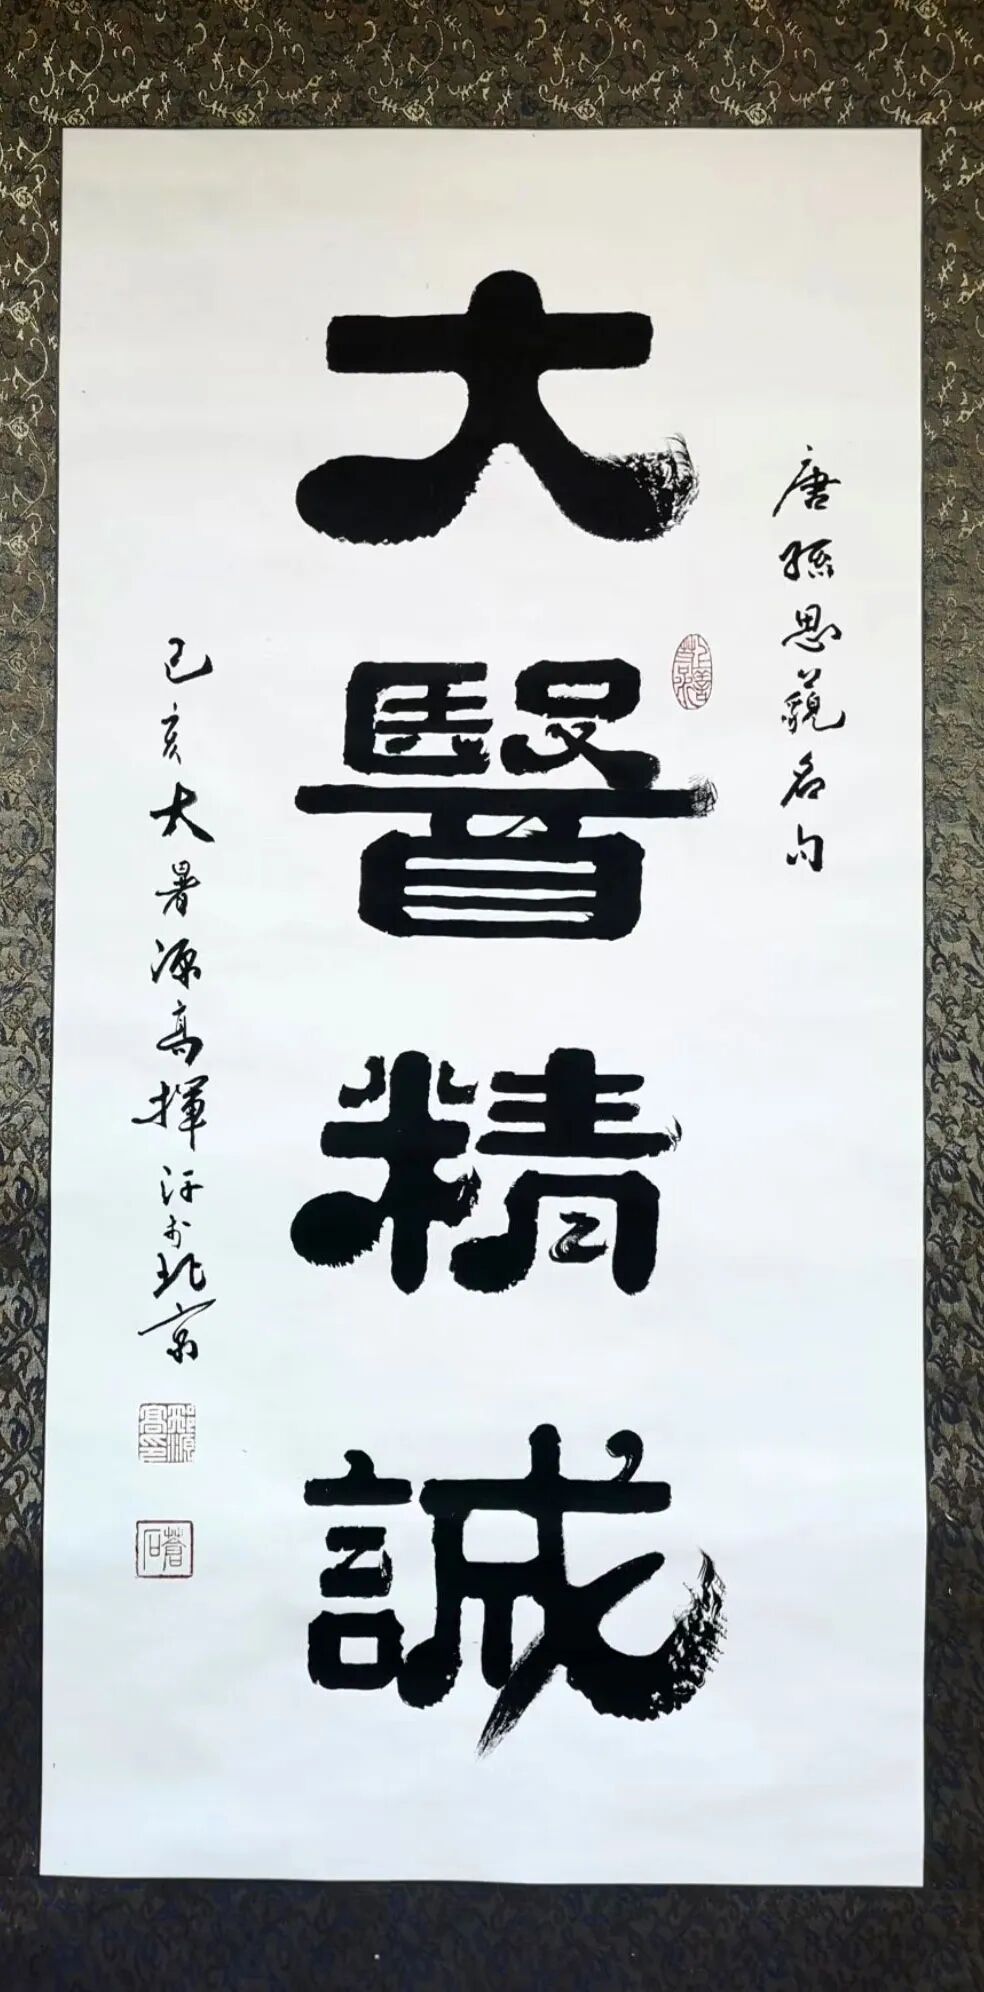 唐孫思藐名句
大醫精誠
己亥大暑源高揮汗於北京